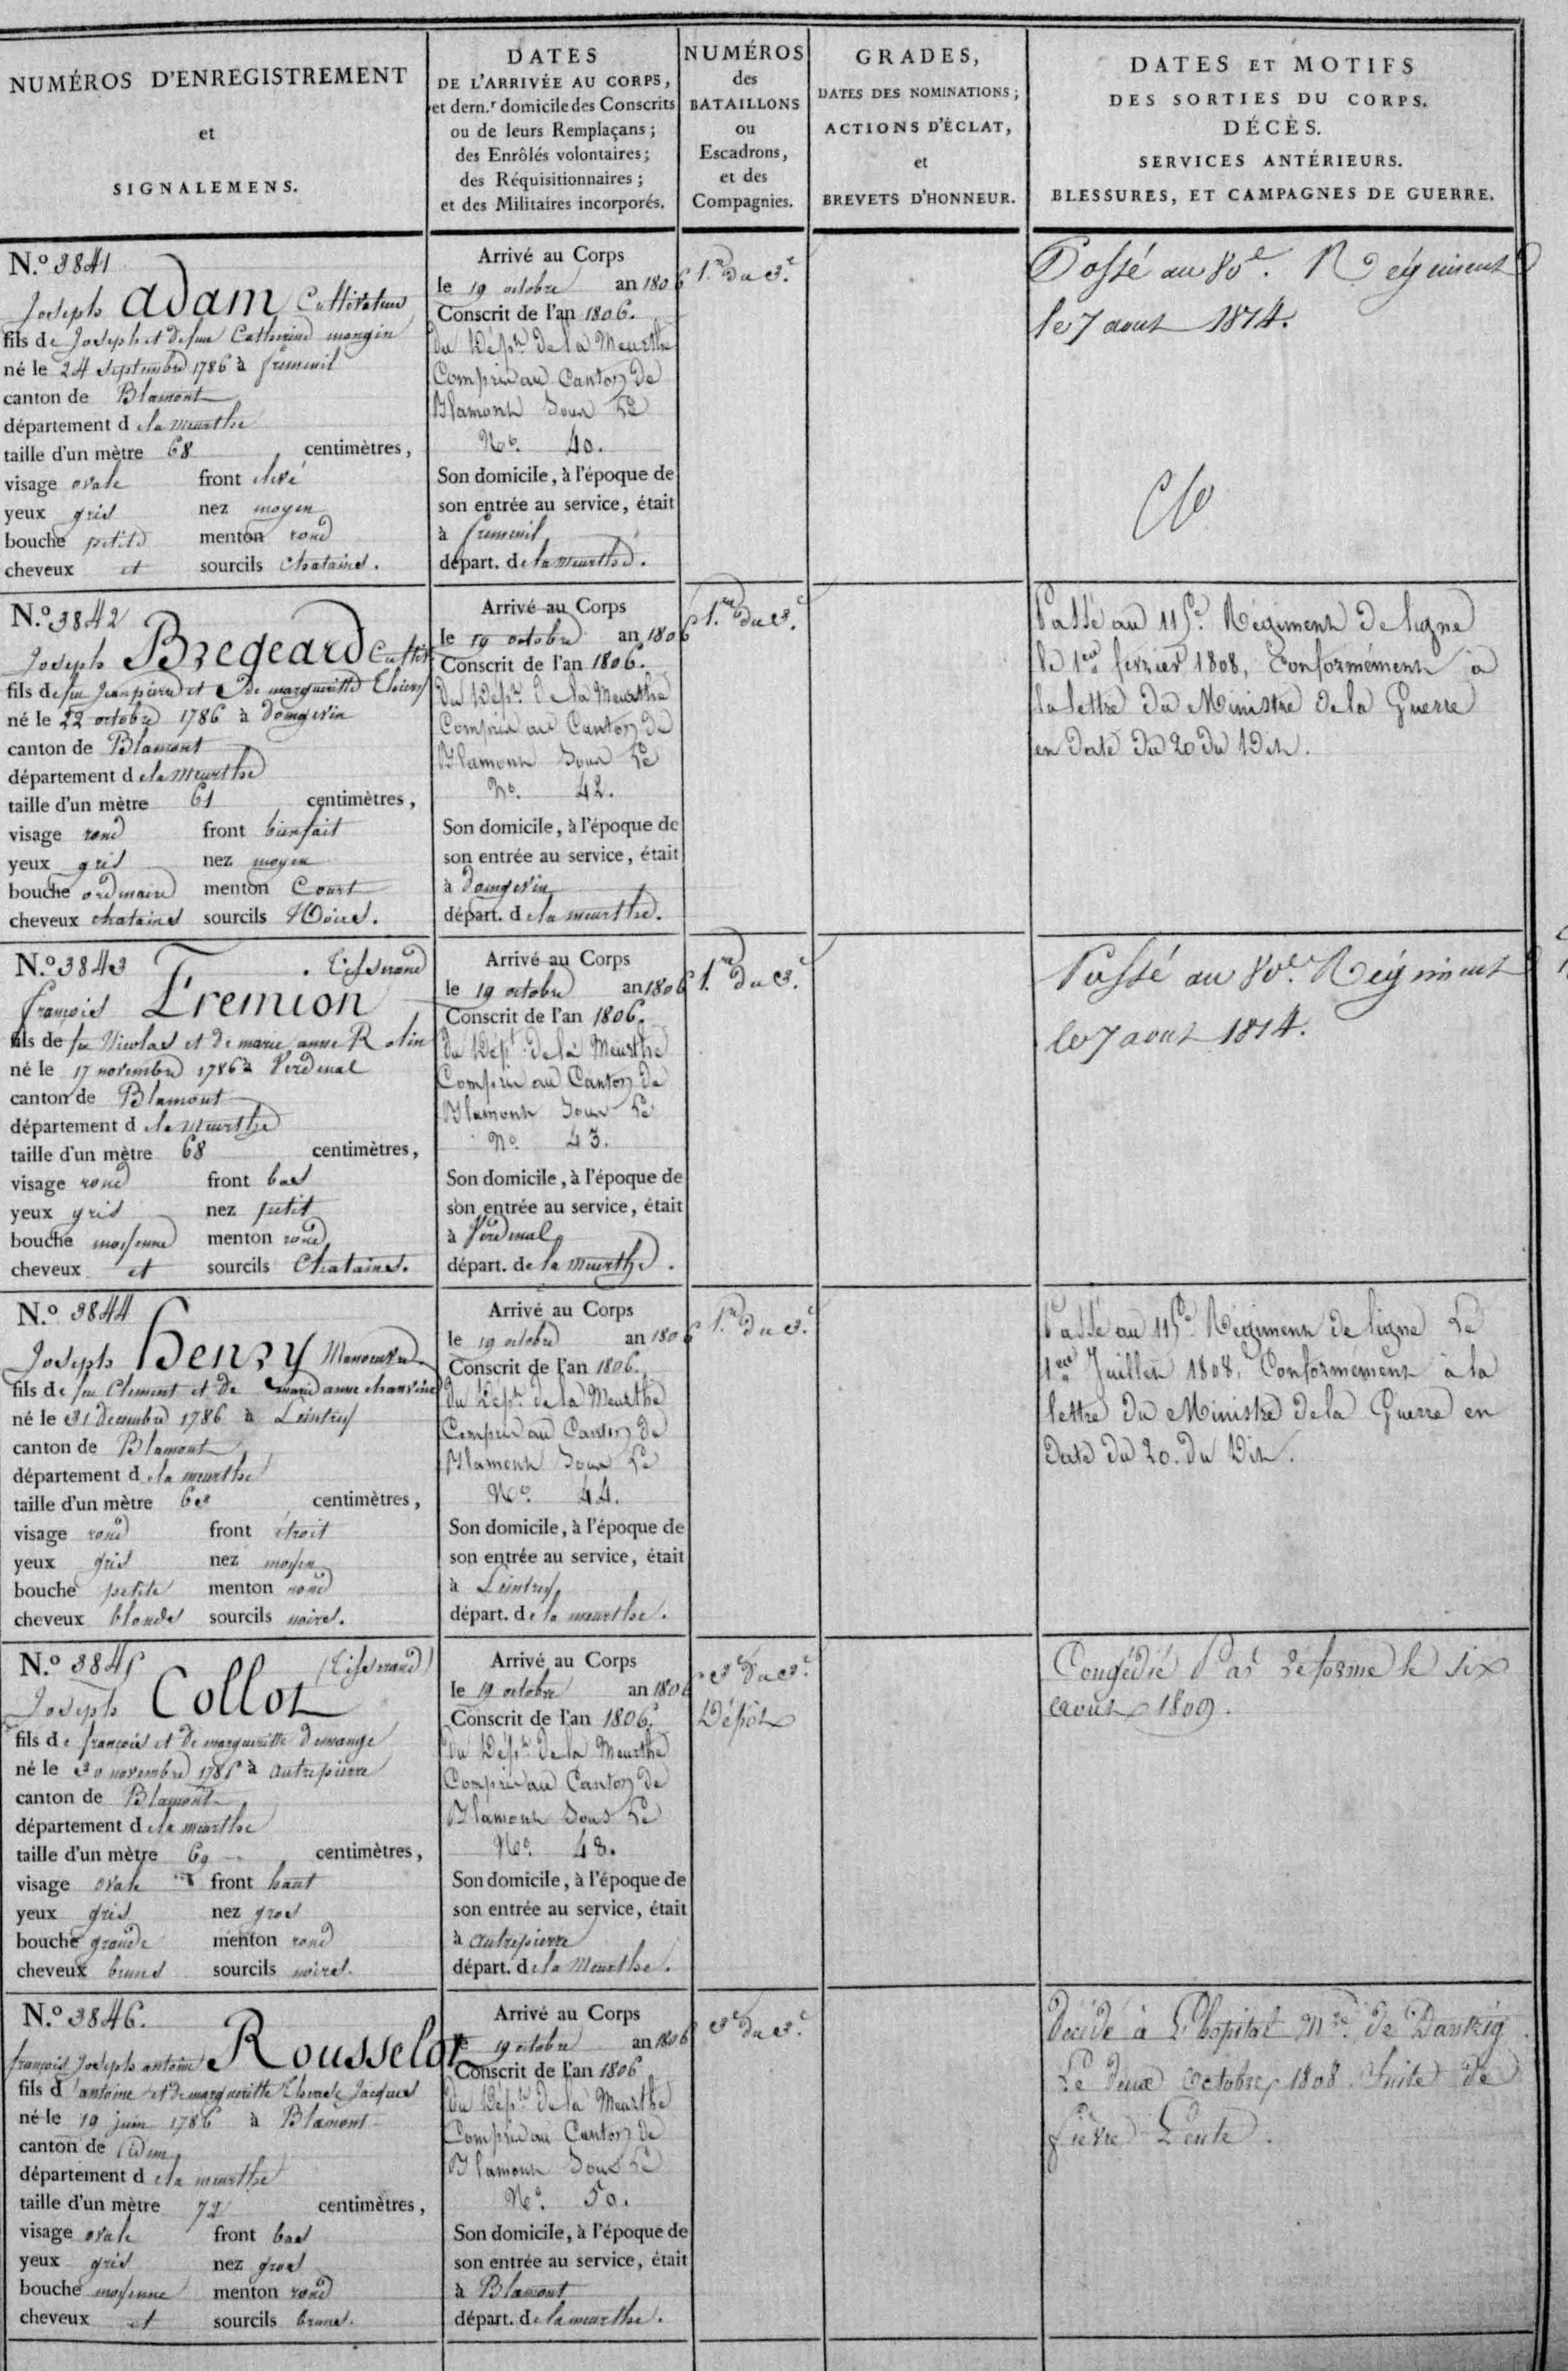 NUMÉROS D'ENREGISTREMENT
et
SIGNALEMENS.
DATES
DE L'ARRIVÉE AU CORPS,
et dern.r domicile des Conscrits
ou de leurs Remplaçans ;
des Enrôlés volontaires ;
des Réquisitionnaires ;
et des Militaires incorporés.
NUMÉROS
des
BATAILLONS
ou
Escadrons,
et des
Compagnies.
GRADES,
DATES DES NOMINATIONS ;
ACTIONS D'ÉCLAT,
et
BREVETS D'HONNEUR.
DATES ET MOTIFS
DES SORTIES DU CORPS.
DÉCÈS.
SERVICES ANTÉRIEURS.
BLESSURES, ET CAMPAGNES DE GUERRE.
N.º 3841
Joseph Adam Cultivateur
fils de Joseph et defeue Catherine mangin
né le 24 septembre 1786 à fremenil
canton de Blamont
département de la meurthe
taille d'un mètre 68 centimètres,
visage ovale front elevé
yeux gris nez moyen
bouche petite menton rond
cheveux et sourcils chatains.
Arrivé au Corps
le 19 octobre an 1806
Conscrit de l'an 1806.
du Dépt. de la Meurthe
Compris au Canton de
Blamont Sous Le
No. 40.
Son domicile, à l'époque de
son entrée au service, était
à fremenil
départ. de la meurthe.
1.re du 3.e
Passé au 80e. Régiment
le 7 aout 1814.
N.º 3842
Joseph Bregeard Cultiv
fils de feu Jean pierre et de margueritte
né le 22 octobre 1786 à domgevin
canton de Blamont
département de la Meurthe
taille d'un mètre 61 centimètres,
visage rond front bienfait
yeux gris nez moyen
bouche ordinaire menton Court
cheveux chatains sourcils Noirs.
Arrivé au Corps
le 19 octobre an 1806
Conscrit de l'an 1806.
du Dépt. de la Meurthe
Compris au Canton de
Blamont Sous Le
No. 42.
Son domicile, à l'époque de
son entrée au service, était
à domgevin
départ. de la meurthe.
1.re du 3.e
Passé au 115e. Régiment de ligne
le 1er fevrier 1808, Conformément à
la lettre du Ministre de la Guerre
en date du 20 du Dit.
N.º 3843 . Tisserand
françois Fremion
fils de feu Nicolas et de marie anne Rolin
né le 17 novembre 1786 à Verdenal
canton de Blamont
département de la Meurthe
taille d'un mètre 68 centimètres,
visage rond front bas
yeux gris nez petit
bouche moyenne menton rond
cheveux et sourcils Chatains.
Arrivé au Corps
le 19 octobre an 1806
Conscrit de l'an 1806.
du Dépt. de la Meurthe
Compris au Canton de
Blamont Sous Le
No. 43.
Son domicile, à l'époque de
son entrée au service, était
à Verdenal
départ. de la Meurthe.
1.re du 3.e
Passé au 80e. Régiment
le 7 aout 1814.
N.º 3844
Joseph Henry Manoeuvre
fils de feu Clement et de marie anne
né le 31 decembre 1786 à Leintrey
canton de Blamont
département de la meurthe
taille d'un mètre centimètres,
visage rond front étroit
yeux gris nez moyen
bouche petite menton rond
cheveux blonds sourcils noirs.
Arrivé au Corps
le 19 octobre an 1806
Conscrit de l'an 1806.
du Dépt. de la Meurthe
Compris au Canton de
Blamont Sous Le
No. 44.
Son domicile, à l'époque de
son entrée au service, était
à Leintrey
départ. de la meurthe.
1.re du 3.e
Passé au 115e. Régiment de ligne Le
1er Juillet 1808, Conformément à la
lettre du Ministre de la Guerre en
Date du 20. du Dit.
N.º 3845 (Tisserand)
Joseph Collot
fils de françois et de margueritte demange
né le 30 novembre 1786 à autrepierre
canton de Blamont
département de la meurthe
taille d'un mètre 69 centimètres,
visage ovale front haut
yeux gris nez gros
bouche grande menton rond
cheveux bruns sourcils noirs.
Arrivé au Corps
le 19 octobre an 1806
Conscrit de l'an 1806.
du Dépt. de la Meurthe
Compris au Canton de
Blamont Sous Le
No. 48.
Son domicile, à l'époque de
son entrée au service, était
à autrepierre
départ. de la Meurthe.
3e du 3.e
Dépot
Congédié Par Réforme le six
Aout 1809.
N.º 3846.
françois Joseph antoine Rousselot
fils d'antoine et de margueritte Jacques
né le 19 juin 1786 à Blamont
canton de idem
département de la meurthe
taille d'un mètre 72 centimètres,
visage ovale front bas
yeux gris nez gros
bouche moyenne menton rond
cheveux et sourcils bruns.
Arrivé au Corps
le 19 octobre an 1806
Conscrit de l'an 1806
du Dépt. de la Meurthe
Compris au Canton de
Blamont Sous Le
No. 50.
Son domicile, à l'époque de
son entrée au service, était
à Blamont
départ. de la meurthe.
3e du 3.e
Décédé à L'hopital Mre. de Dantzig
Le Deux Octobre 1808. Suite de
fièvre Lente.